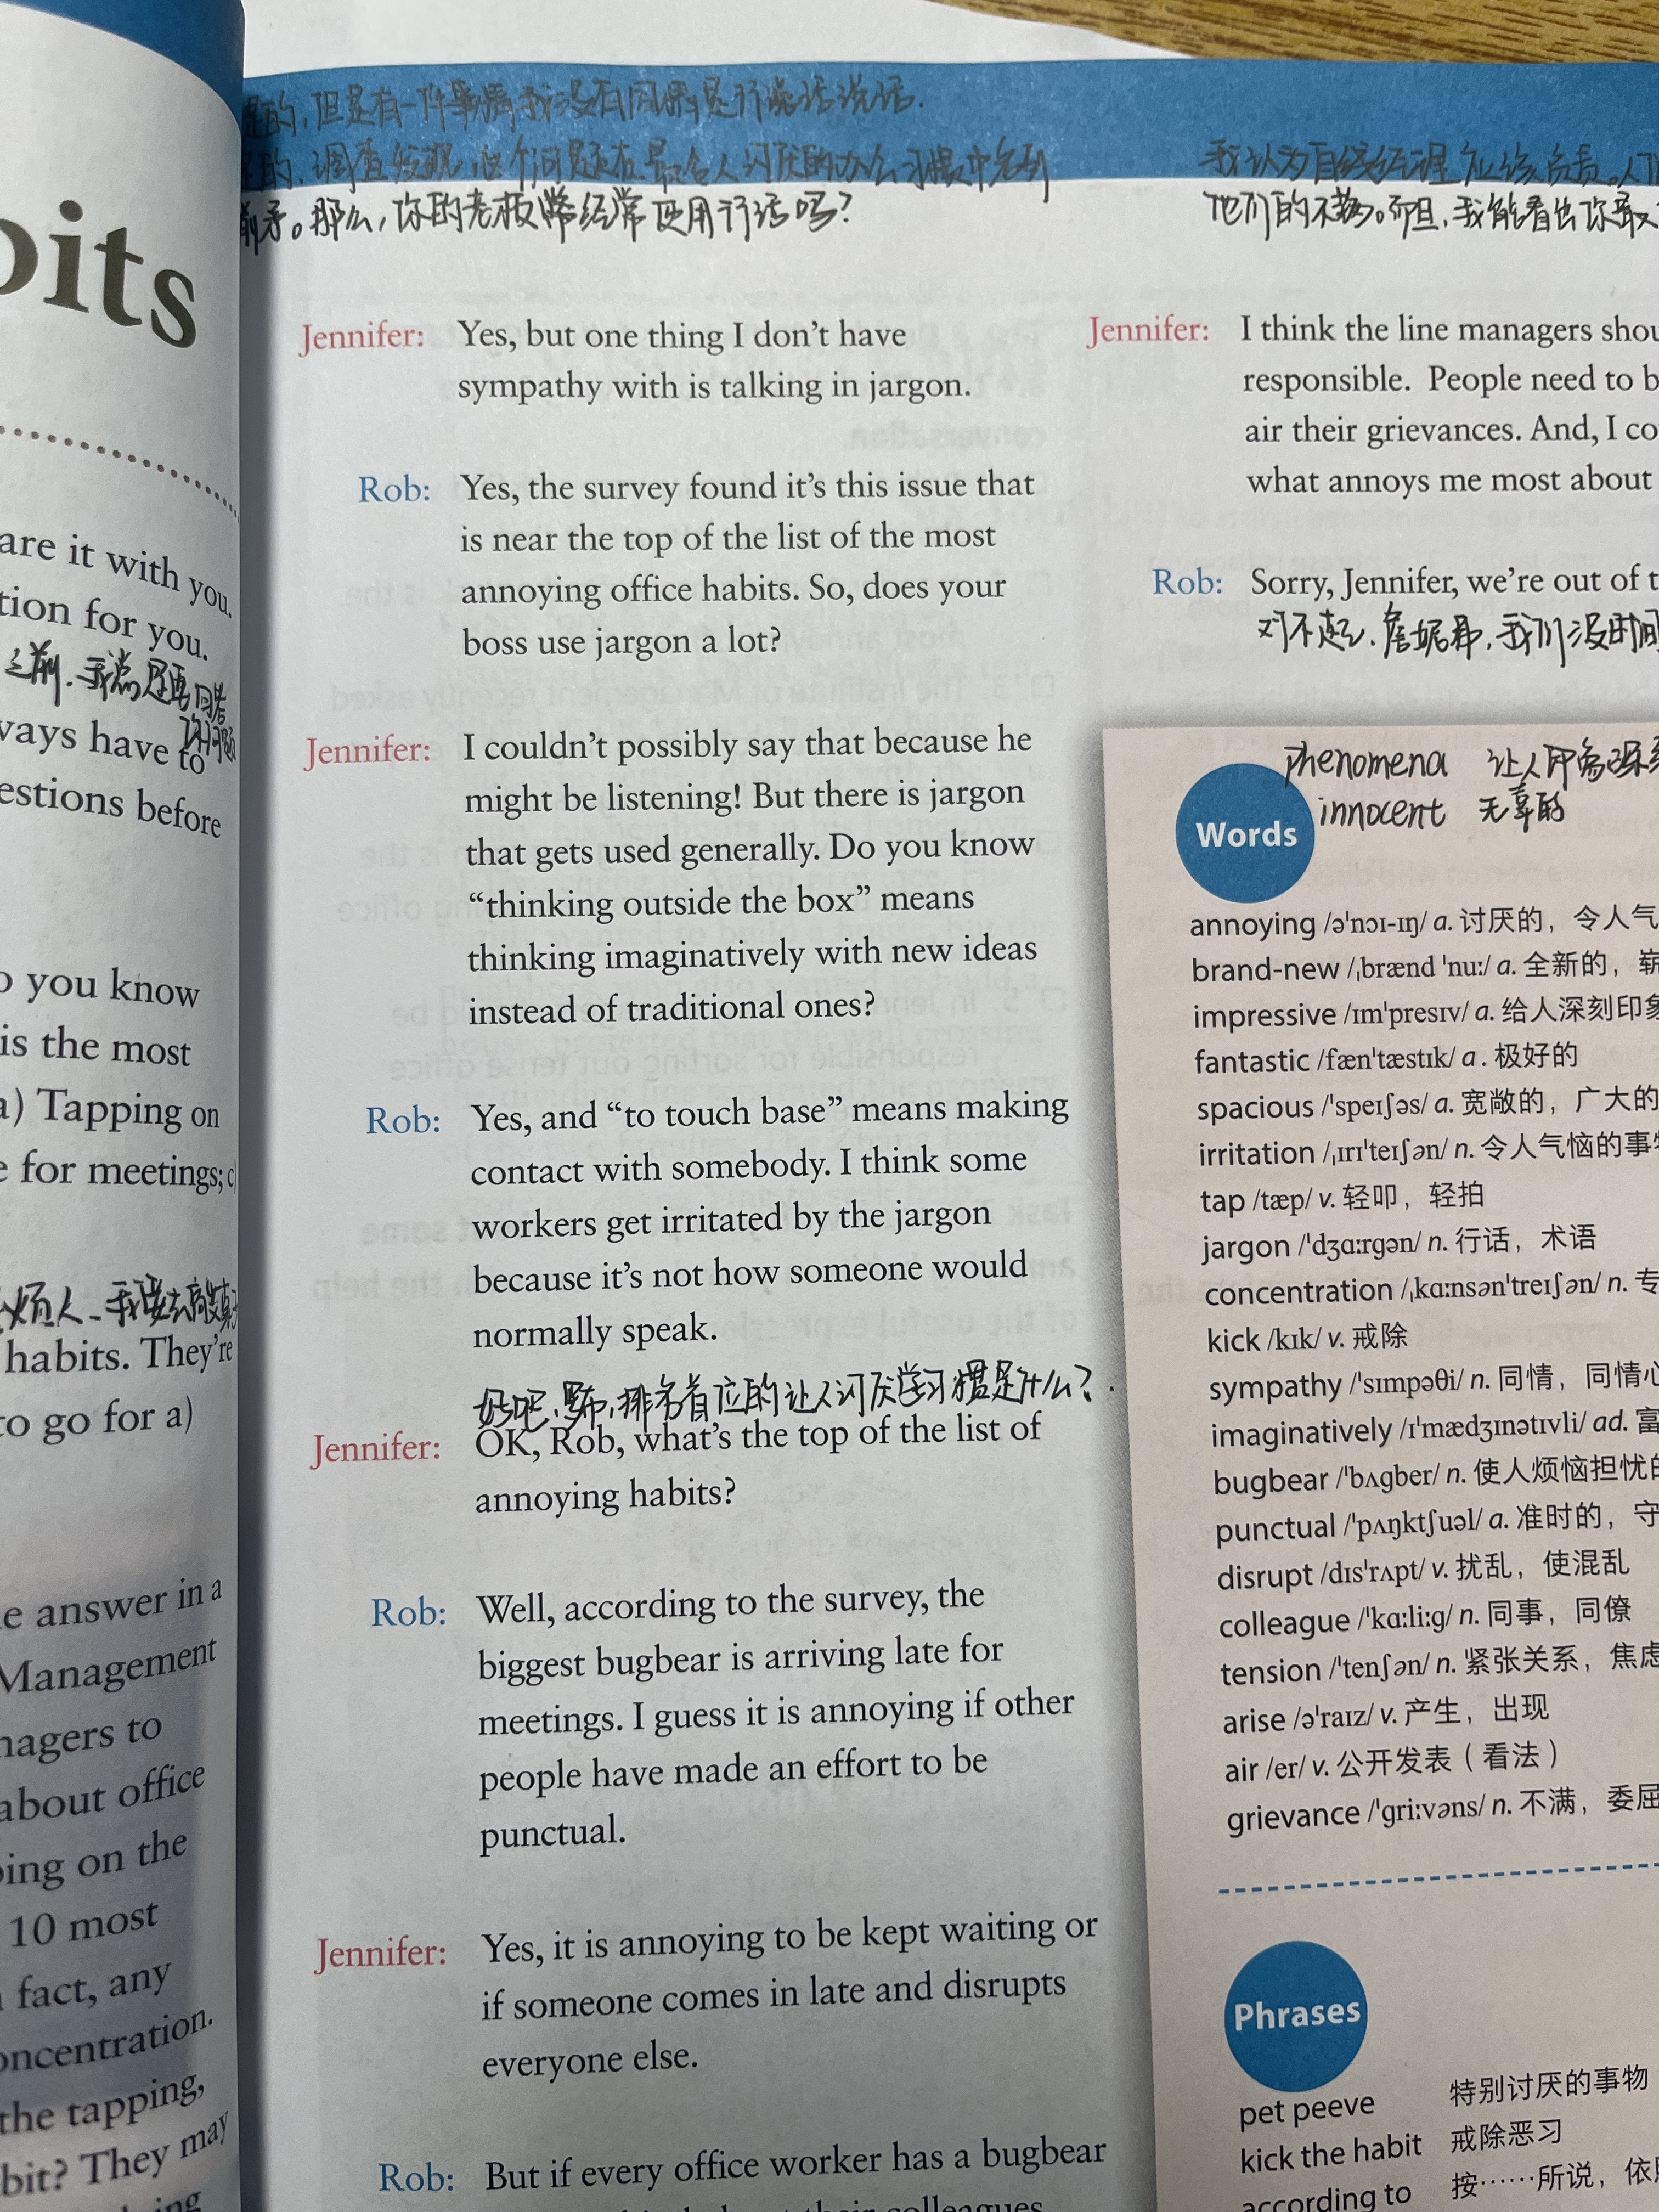 bits
are it with you.
tion for you.
之前.我总是要回答
你问题
ways have to
estions before
o you know
is the most
a) Tapping on
e for meetings; c)
habits. They're
to go for a)
e answer in a
Management
nagers to
about office
ping on the
10 most
n fact, any
oncentration.
the tapping,
bit? They may
是的,但是有一件事情我没有同情是行说话.
的.调查发现,这个问题在最令人讨厌的办公习惯中名列
前矛。那么,你的老板经常使用行话吗?
Jennifer: Yes, but one thing I don't have
sympathy with is talking in jargon.
Rob: Yes, the survey found it's this issue that
is near the top of the list of the most
annoying office habits. So, does your
boss use jargon a lot?
Jennifer: I couldn't possibly say that because he
might be listening! But there is jargon
that gets used generally. Do you know
"thinking outside the box" means
thinking imaginatively with new ideas
instead of traditional ones?
Rob: Yes, and "to touch base" means making
contact with somebody. I think some
workers get irritated by the jargon
because it's not how someone would
normally speak.
好吧,罗布,排名首位的让人讨厌学习惯是什么?
Jennifer: OK, Rob, what's the top of the list of
annoying habits?
Rob: Well, according to the survey, the
biggest bugbear is arriving late for
meetings. I guess it is annoying if other
people have made an effort to be
punctual.
Jennifer: Yes, it is annoying to be kept waiting or
if someone comes in late and disrupts
everyone else.
Rob: But if every office worker has a bugbear
their colleagues
我认为直线经理应该负责。人们
他们的不满。而且,我能看出你最
Jennifer: I think the line managers shou
responsible. People need to b
air their grievances. And, I co
what annoys me most about
Rob: Sorry, Jennifer, we're out of t
对不起,詹妮弗,我们没时间
phenomena 让人印象深
innocent 无辜的
Words
annoying /ə'nɔɪ-ɪŋ/ a. 讨厌的，令人气
brand-new /ˌbrænd 'nuː/ a. 全新的，崭
impressive /ɪm'presɪv/ a. 给人深刻印象
fantastic /fæn'tæstɪk/ a. 极好的
spacious /'speɪʃəs/ a. 宽敞的，广大的
irritation /ˌɪrɪ'teɪʃən/ n. 令人气恼的事物
tap /tæp/ v. 轻叩，轻拍
jargon /'dʒɑːrgən/ n. 行话，术语
concentration /ˌkɑːnsən'treɪʃən/ n. 专
kick /kɪk/ v. 戒除
sympathy /'sɪmpəθi/ n. 同情，同情心
imaginatively /ɪ'mædʒɪnətɪvli/ ad. 富
bugbear /'bʌgber/ n. 使人烦恼担忧的
punctual /'pʌŋktʃuəl/ a. 准时的，守
disrupt /dɪs'rʌpt/ v. 扰乱，使混乱
colleague /'kɑːliːg/ n. 同事，同僚
tension /'tenʃən/ n. 紧张关系，焦虑
arise /ə'raɪz/ v. 产生，出现
air /er/ v. 公开发表（看法）
grievance /'griːvəns/ n. 不满，委屈
Phrases
pet peeve 特别讨厌的事物
kick the habit 戒除恶习
according to 按……所说，依照